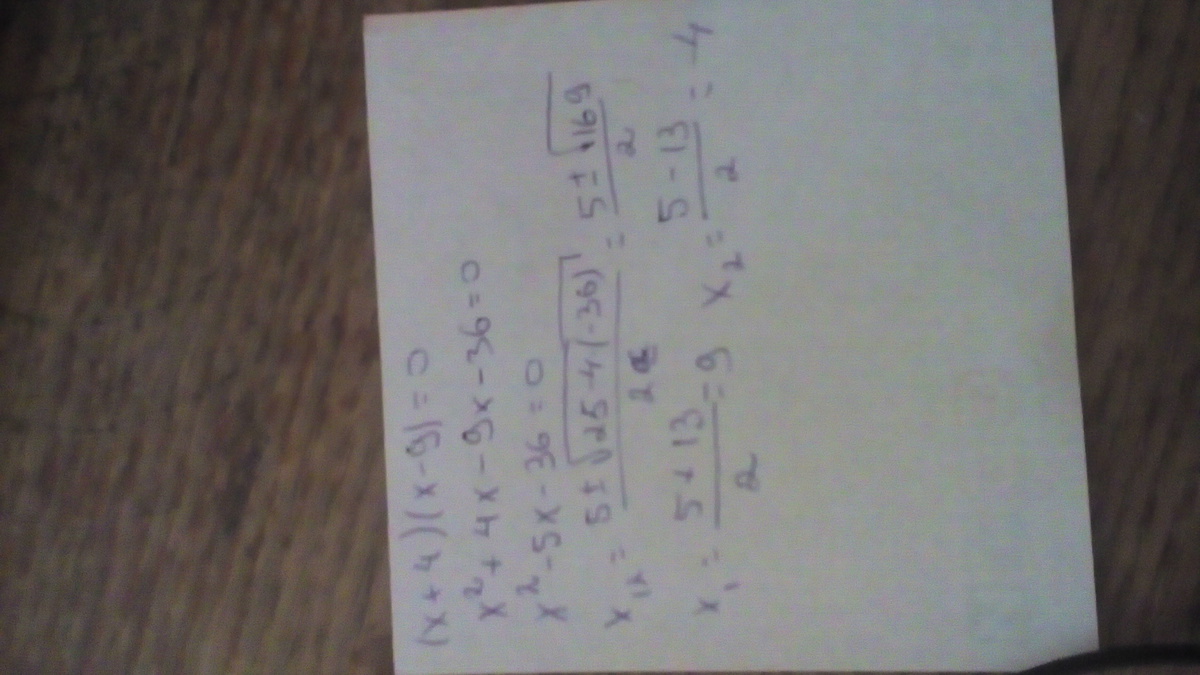 (x+4)(x-9)=0
x²+4x-9x-36=0
x²-5x-36=0
x₁,₂ = (5±√(25-4(-36)))/2 = (5±√169)/2
x₁ = (5+13)/2 = 9 x₂ = (5-13)/2 = -4